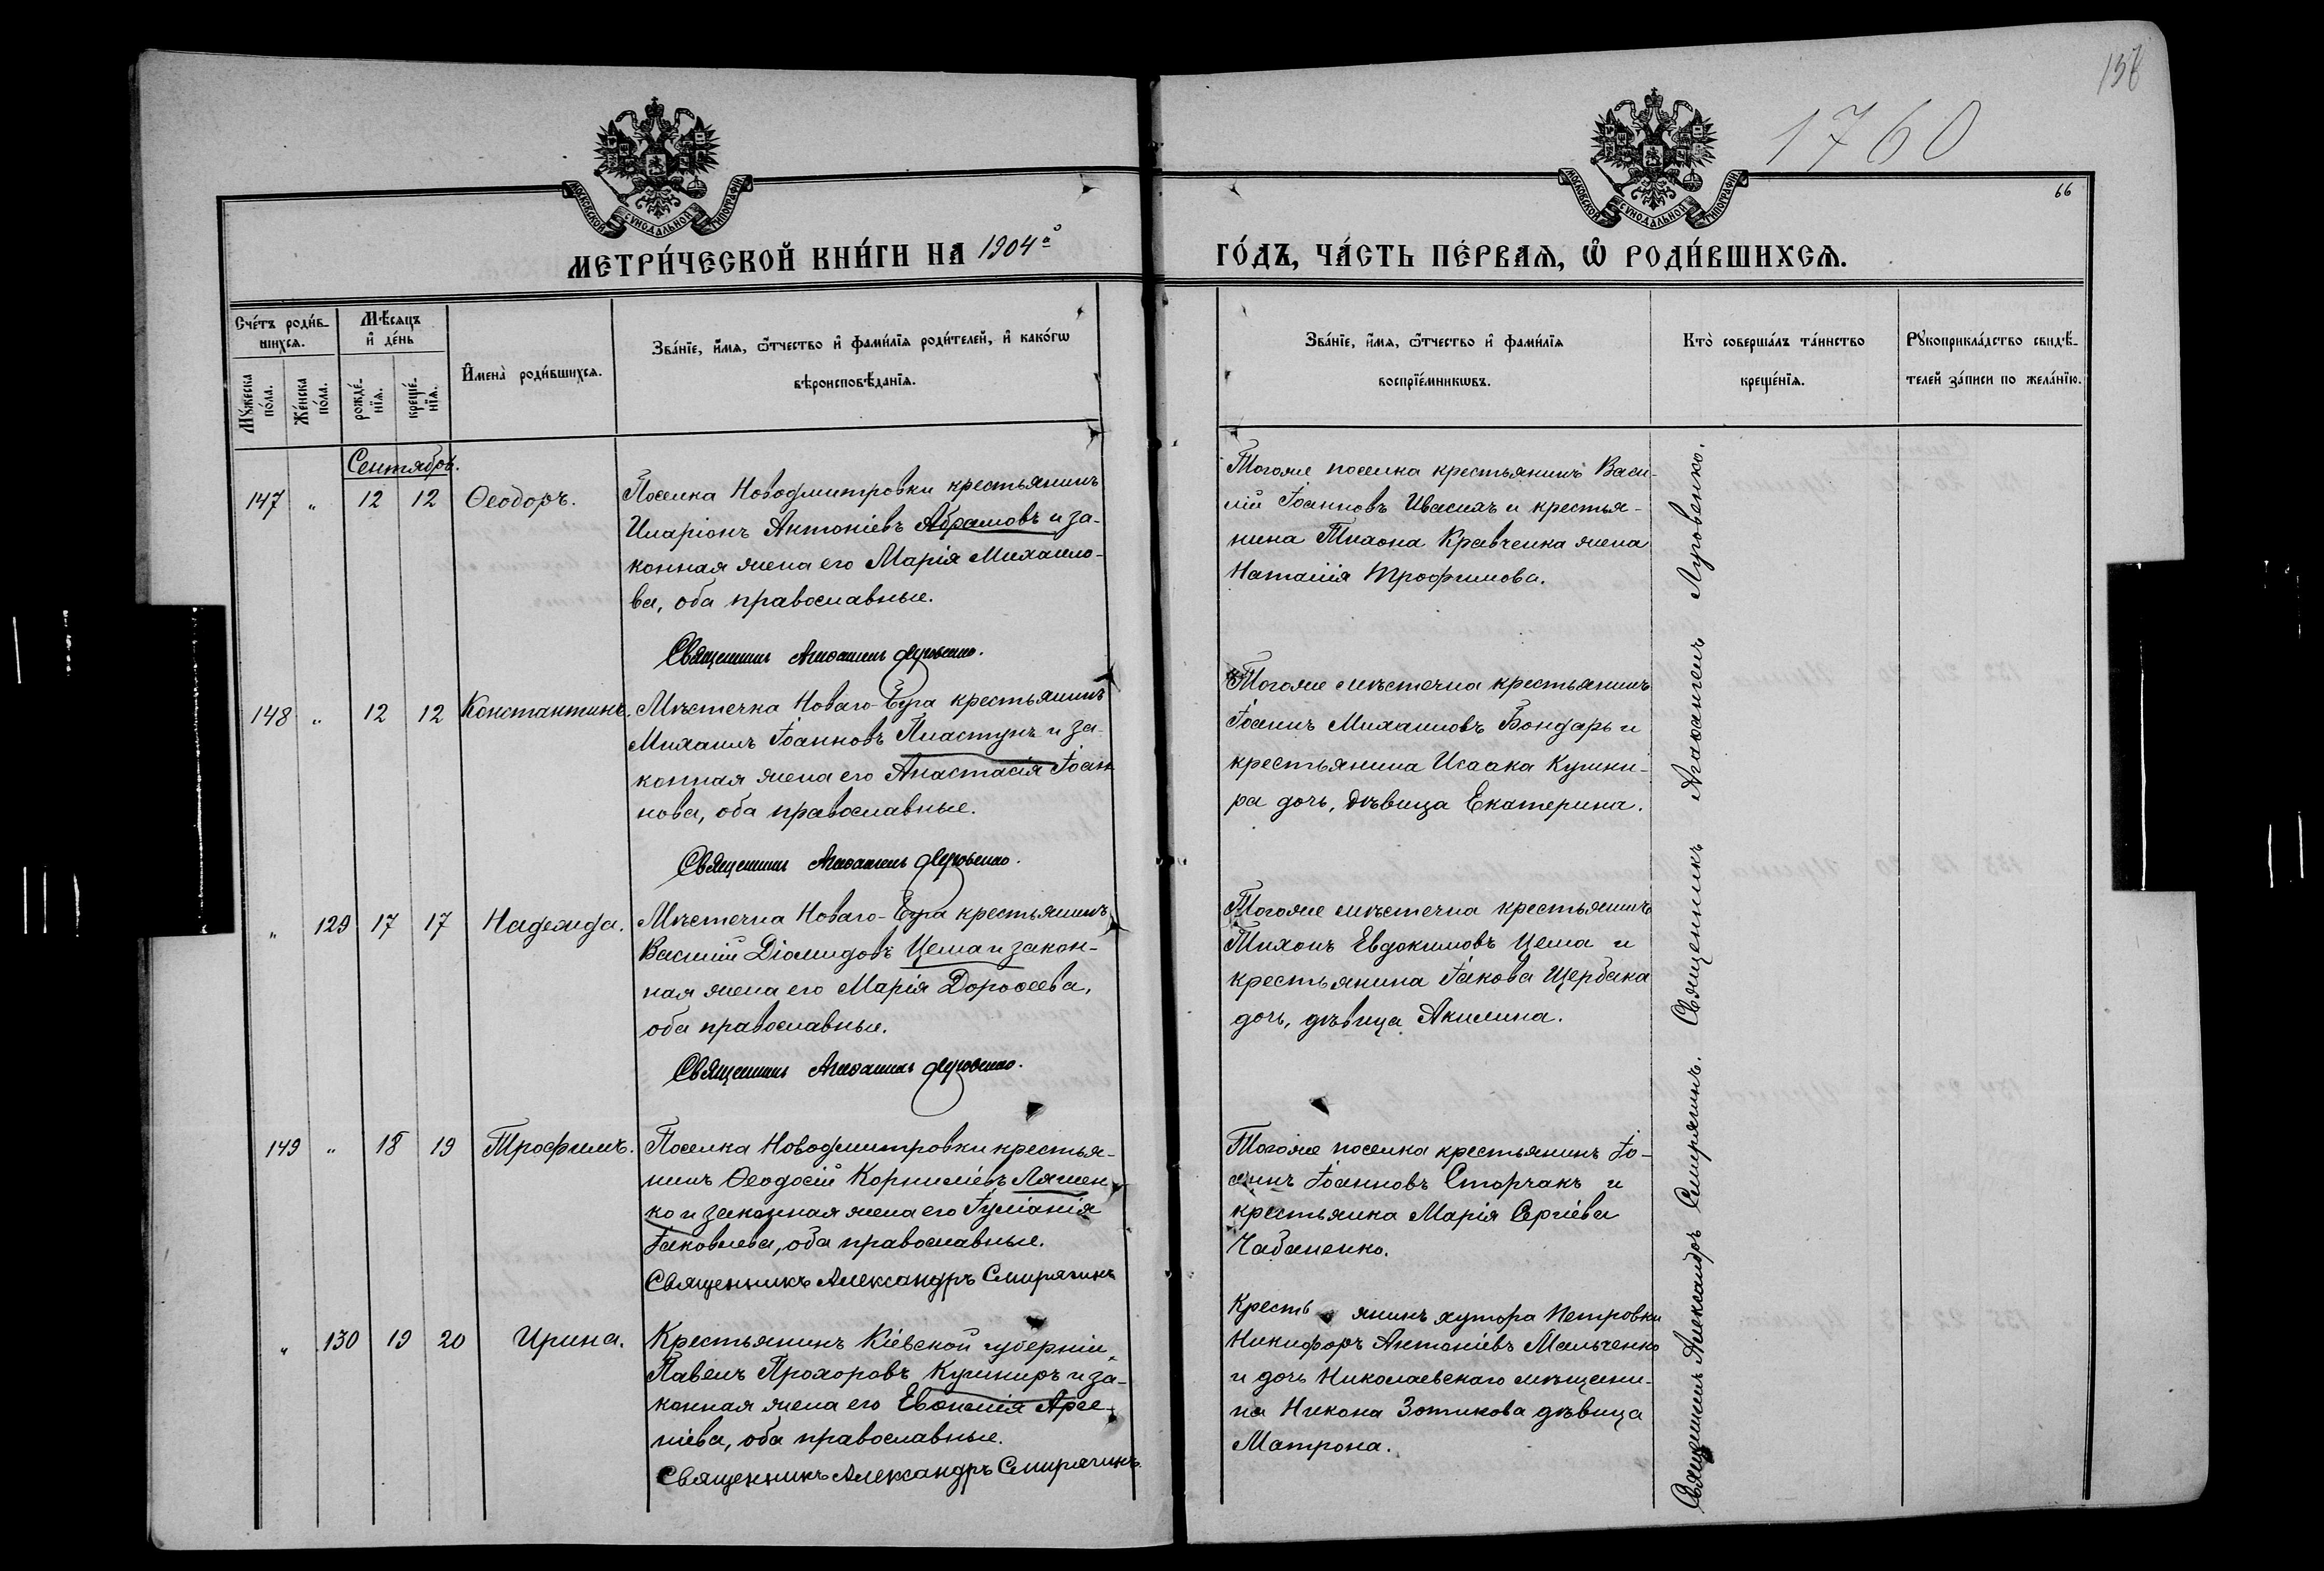 138
1760
66
МОСКОВСКОЙ СУНОДАЛЬНОЙ ТИПОГРАФІИ
МОСКОВСКОЙ СУНОДАЛЬНОЙ ТИПОГРАФІИ
МЕТРИ́ЧЕСКОЙ КНИ́ГИ НА 1904й
ГО́ДЪ, ЧА́СТЬ ПЕ́РВАѦ, Ѡ҆ РОДИ́ВШИХСѦ.
Сче́тъ роди́в-
шихсѧ.
Мꙋ́жеска по́ла.
Же́нска по́ла.
Мѣ́сѧцъ
и҆ де́нь
рожде́-
нїѧ.
креще́-
нїѧ.
И҆мена̀ роди́вшихсѧ.
Зва́нїе, и҆́мѧ, ѻ҆́тчество и҆ фами́лїѧ роди́телей, и҆ како́гѡ
вѣроисповѣ́данїѧ.
Зва́нїе, и҆́мѧ, ѻ҆́тчество и҆ фами́лїѧ
воспрїе́мникѡвъ.
Кто̀ соверша́лъ та́инство
креще́нїѧ.
Рꙋкоприкла́дство свидѣ́-
телей за́писи по жела́нїю.
Сентябрь.
147 " 12 12 Ѳеодоръ.
Поселка Новодмитровки крестьянинъ
Иларіонъ Антоніевъ Абрамовъ и за-
конная жена его Марія Михаило-
ва, оба православные.
Священникъ Агаѳангелъ Луговенко.
Тогоже поселка крестьянинъ Васи-
лій Іоанновъ Ивасихъ и крестья-
нина Тихона Кравченка жена
Наталія Трофимова.
148 " 12 12 Константинъ.
Мѣстечка Новаго-Буга крестьянинъ
Михаилъ Іоанновъ Пластунъ и за-
конная жена его Анастасія Іоан
нова, оба православные.
Священникъ Агаѳангелъ Луговенко.
Тогоже мѣстечка крестьянинъ
Іоаннъ Михаиловъ Бондарь и
крестьянина Исаака Кушни-
ра дочь, дѣвица Екатерина.
" 129 17 17 Надежда.
Мѣстечка Новаго-Буга крестьянинъ
Василій Діомидовъ Цема и закон-
ная жена его Марія Дороѳеева,
оба православные.
Священникъ Агаѳангелъ Луговенко.
Тогоже мѣстечка крестьянинъ
Тихонъ Евдокимовъ Цема и
крестьянина Іакова Щербака
дочь, дѣвица Акилина.
149 " 18 19 Трофимъ.
Поселка Новодмитровки крестья-
нинъ Ѳеодосій Корниліевъ Ляшен
ко и законная жена его Іуліанія
Іаковлева, оба православные.
Священникъ Александръ Смирягинъ
Тогоже поселка крестьянинъ Іо-
аннъ Іоанновъ Сторчакъ и
крестьянка Марія Сергіева
Чабаненко.
" 130 19 20 Ирина.
Крестьянинъ Кіевской губерніи,
Павелъ Прохоровъ Кушниръ и за-
конная жена его Евѳимія Арсе-
ніева, оба православные.
Священникъ Александръ Смирягинъ.
Кресть янинъ хутора Петровки
Никифоръ Антоніевъ Мальченко
и дочь Николаевскаго мѣщани-
на Никона Зотикова дѣвица
Матрона.
Священникъ Агаѳангелъ Луговенко.
Священникъ Александръ Смирягинъ.